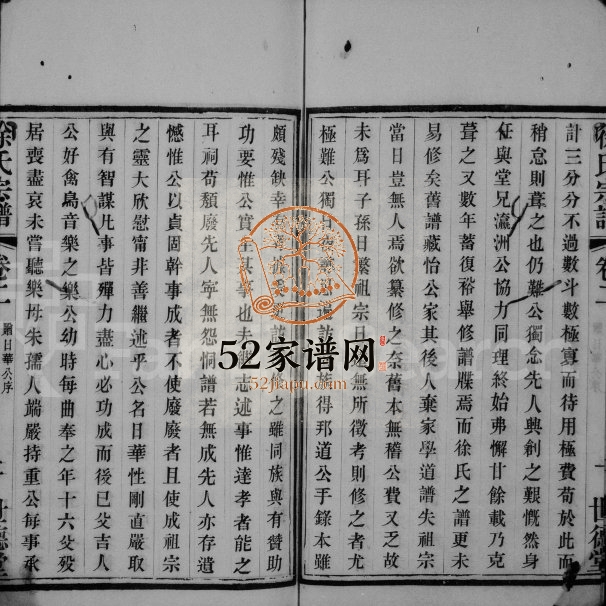 計三分分不過數斗數極寡而待用極費苟於此而
稍怠則葺之也仍難公獨念先人興創之艱慨然身
任與堂兄瀛洲公協力同理終始弗懈甘餘載乃克
葺之又數年蓄復裕舉修譜牒焉而徐氏之譜更未
易修矣舊譜藏怡公家其後人棄家學道譜失祖宗
當日豈無人焉欲纂修之奈舊本無稽公費又乏故
未爲耳子孫日繁祖宗日遠無所徵考則修之者尤
極難公獨日夜 得邦道公手錄本雖
頗殘缺幸 之雖同族與有贊助
功要惟公實 其事也夫繼志述事惟達孝者能之
耳祠苟頹廢先人寧無怨恫譜若無成先人亦存遺
憾惟公以貞固幹事成者不使廢廢者且使成祖宗
之靈大欣慰甯非善繼述乎公名日華性剛直嚴取
與有智謀凡事皆殫力盡心必功成而後已父吉人
公好禽鳥音樂之樂公幼時每曲奉之年十六父歿
居喪盡哀未嘗聽樂母朱孺人端嚴持重公每事承
徐氏宗譜
卷二
贈日華公序
世德堂
徐氏宗譜
卷二
世德堂
52家谱网
52jiapu.com